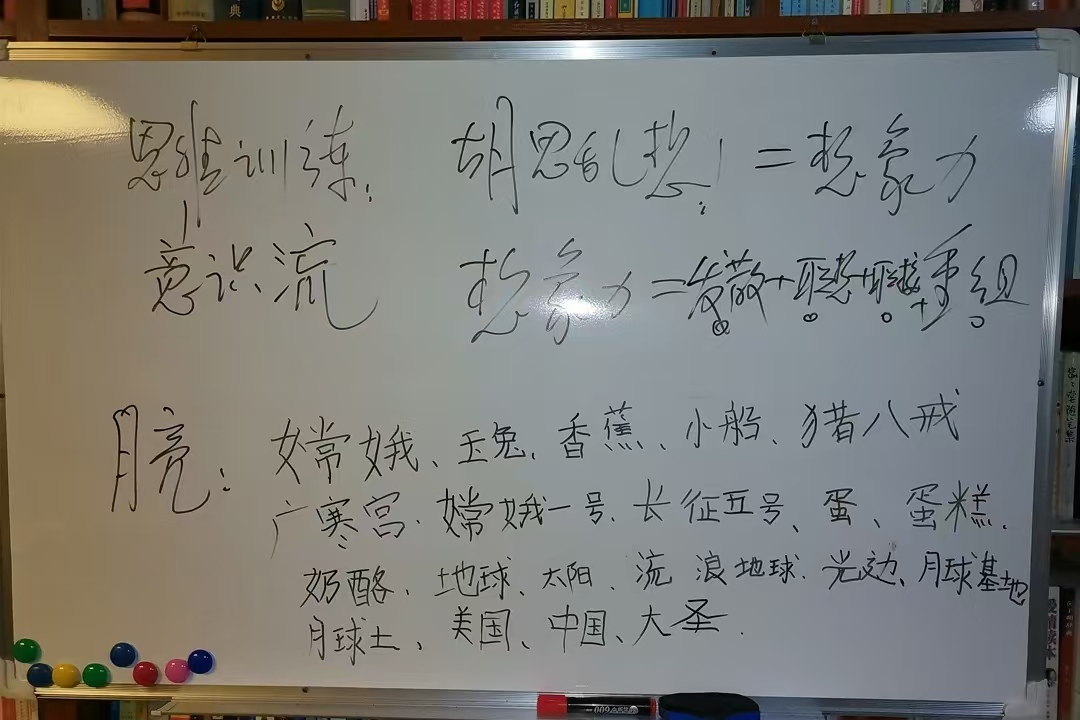 思维训练: 胡思乱想! = 想象力
意识流 想象力=发散+联想+联接+重组
月亮: 嫦娥、玉兔、香蕉、小船、猪八戒
广寒宫、嫦娥一号、长征五号、蛋、蛋糕、
奶酪、地球、太阳、流浪地球、光边、月球基地
月球土、美国、中国、大圣.